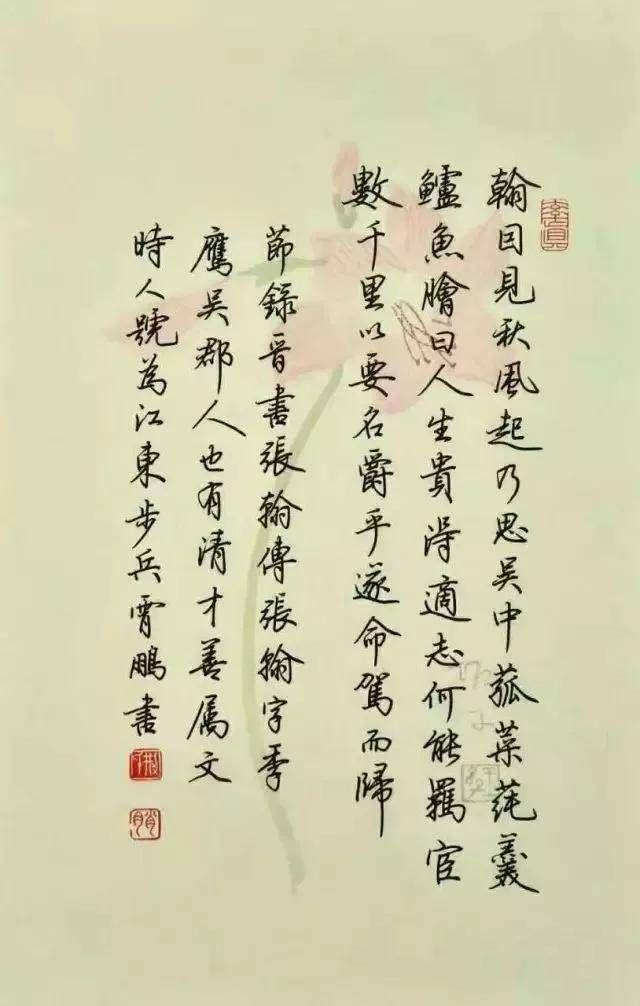 翰因見秋風起乃思吳中菰菜蒓羹
鱸魚膾曰人生貴得適志何能羈宦
數千里以要名爵乎遂命駕而歸
節錄晉書張翰傳張翰字季
鷹吳郡人也有清才善屬文
時人號為江東步兵霄鵬書